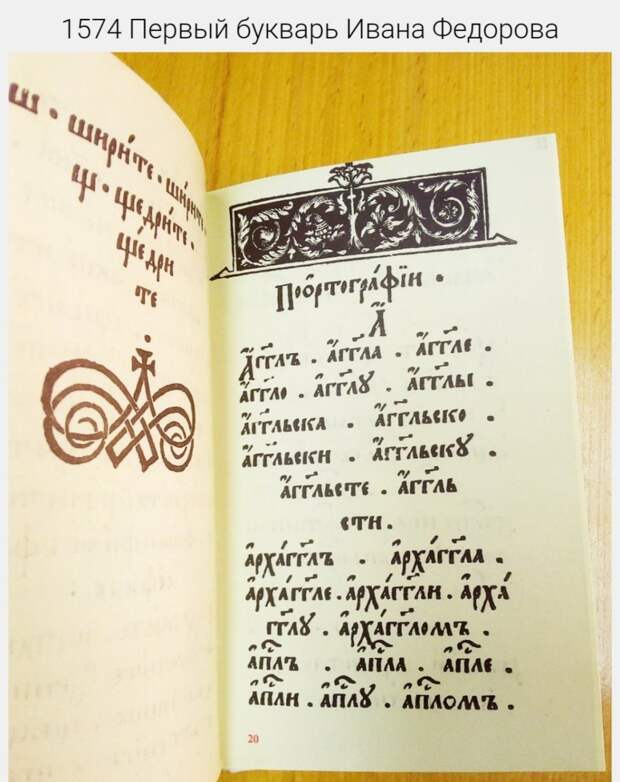 1574 Первый букварь Ивана Федорова
ш · ширѝте · ширите
щ · щедрѝте ·
щѐдри
те ·
По ѻ҆ртогра́фїи ·
А҆
А҆́гг҃лъ . а҆́гг҃ла . а҆́гг҃ле .
а҆́гг҃ло . а҆́гг҃лꙋ . а҆́гг҃лы .
а҆́гг҃льска . а҆́гг҃льско .
а҆́гг҃льски . а҆́гг҃льскꙋ .
а҆́гг҃льсте . а҆́гг҃ль
сти .
а҆рха́гг҃лъ . а҆рха́гг҃ла .
а҆рха́гг҃ле . а҆рха́гг҃ли . а҆рха́
гг҃лꙋ . а҆рха́гг҃ломъ .
а҆пⷭ҇лъ . а҆пⷭ҇ла . а҆пⷭ҇ле .
а҆пⷭ҇ли . а҆пⷭ҇лꙋ . а҆пⷭ҇ломъ .
20